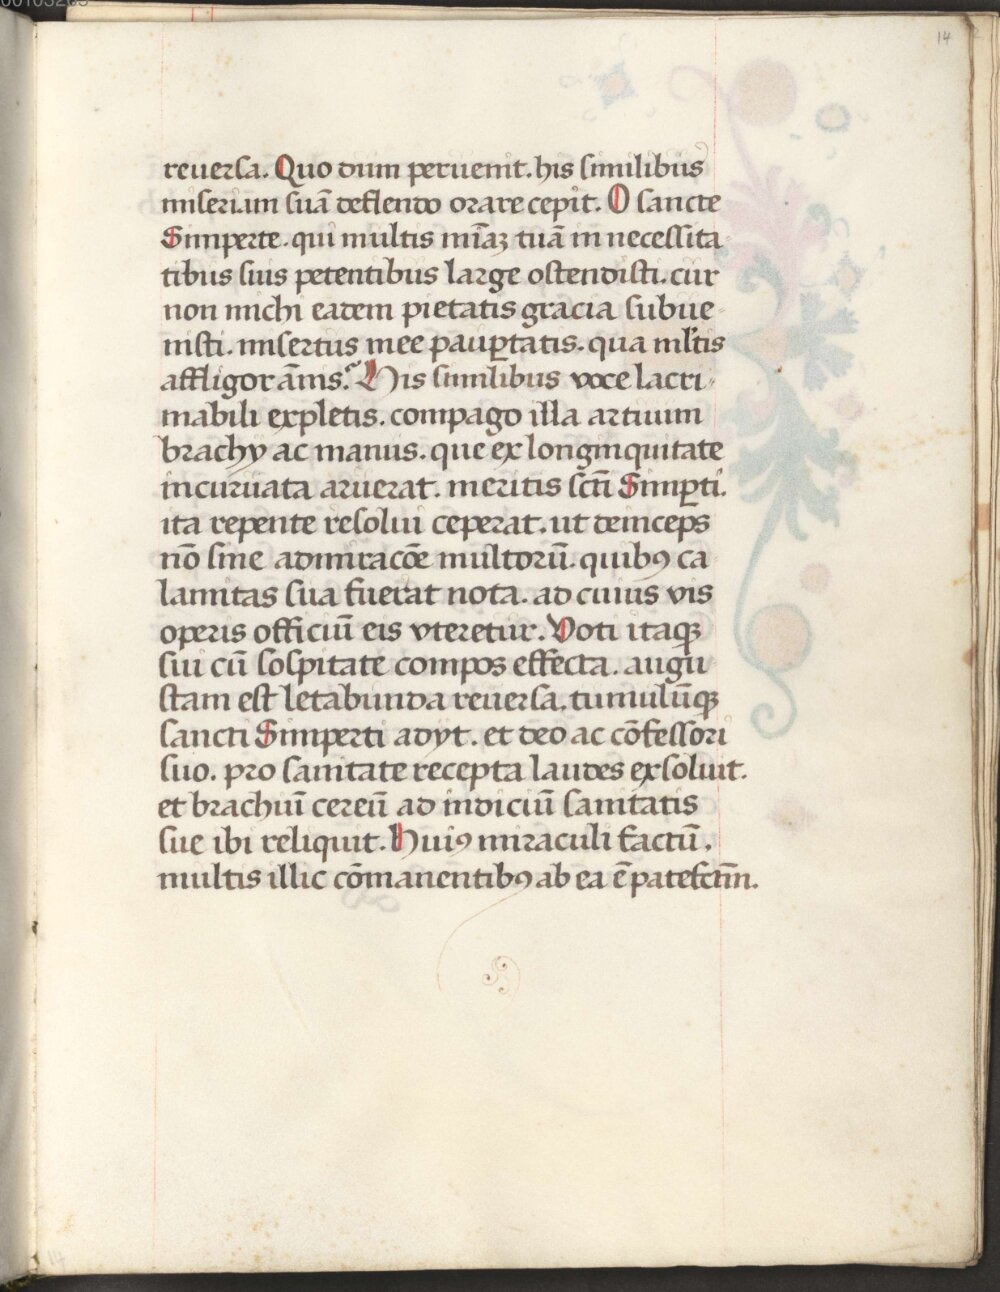 14
reuersa. Quo dum peruenit. his similibus
miseriam suā deflendo orare cepit. O sancte
Simperte. qui multis mīaꝫ tuā in necessita
tibus suis petentibus large ostendisti. cur
non michi eadem pietatis gracia subue-
nisti. misertus mee paup̱tatis. qua ml̓tis
affligor ām̄s. His similibus voce lacri-
mabili expletis. compago illa artuum
brachy ac manus. que ex longinquitate
incuruata aruerat. meritis sc̄ti Simp̱ti.
ita repente resolui ceperat. ut deinceps
nō sine admiracōe multorū. quibꝯ ca
lamitas sua fuerat nota. ad cuius vis
operis officiū eis vteretur. Voti itaqꝫ
sui cū sospitate compos effecta. augu
stam est letabunda reuersa. tumulūqꝫ
sancti Simperti adyt. et deo ac cōfessori
suo. pro sanitate recepta laudes exsoluit.
et brachiū cereū ad indiciū sanitatis
sue ibi reliquit. Huiꝯ miraculi factū.
multis illic cōmanentibꝯ ab ea ē patefctm̄.